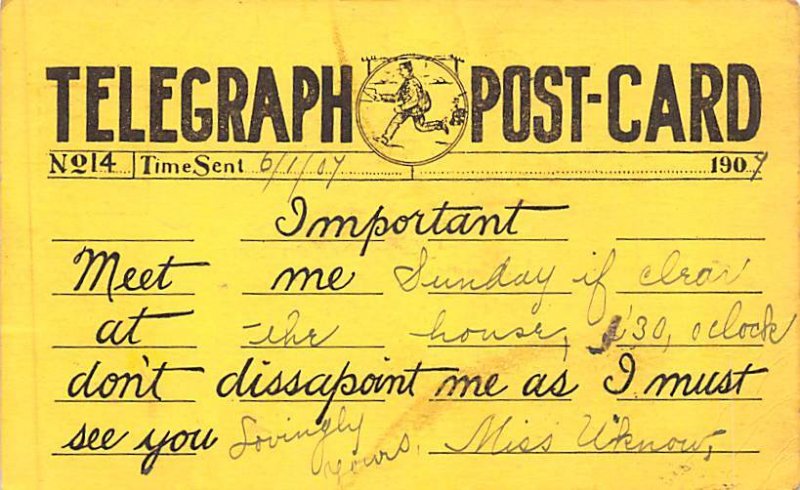 TELEGRAPH POST-CARD
No 14 Time Sent 6/1/07 1907
Important
Meet me Sunday if clear
at the house, 1'30, oclock
don't dissapoint me as I must
see you Lovingly yours, Miss U know,